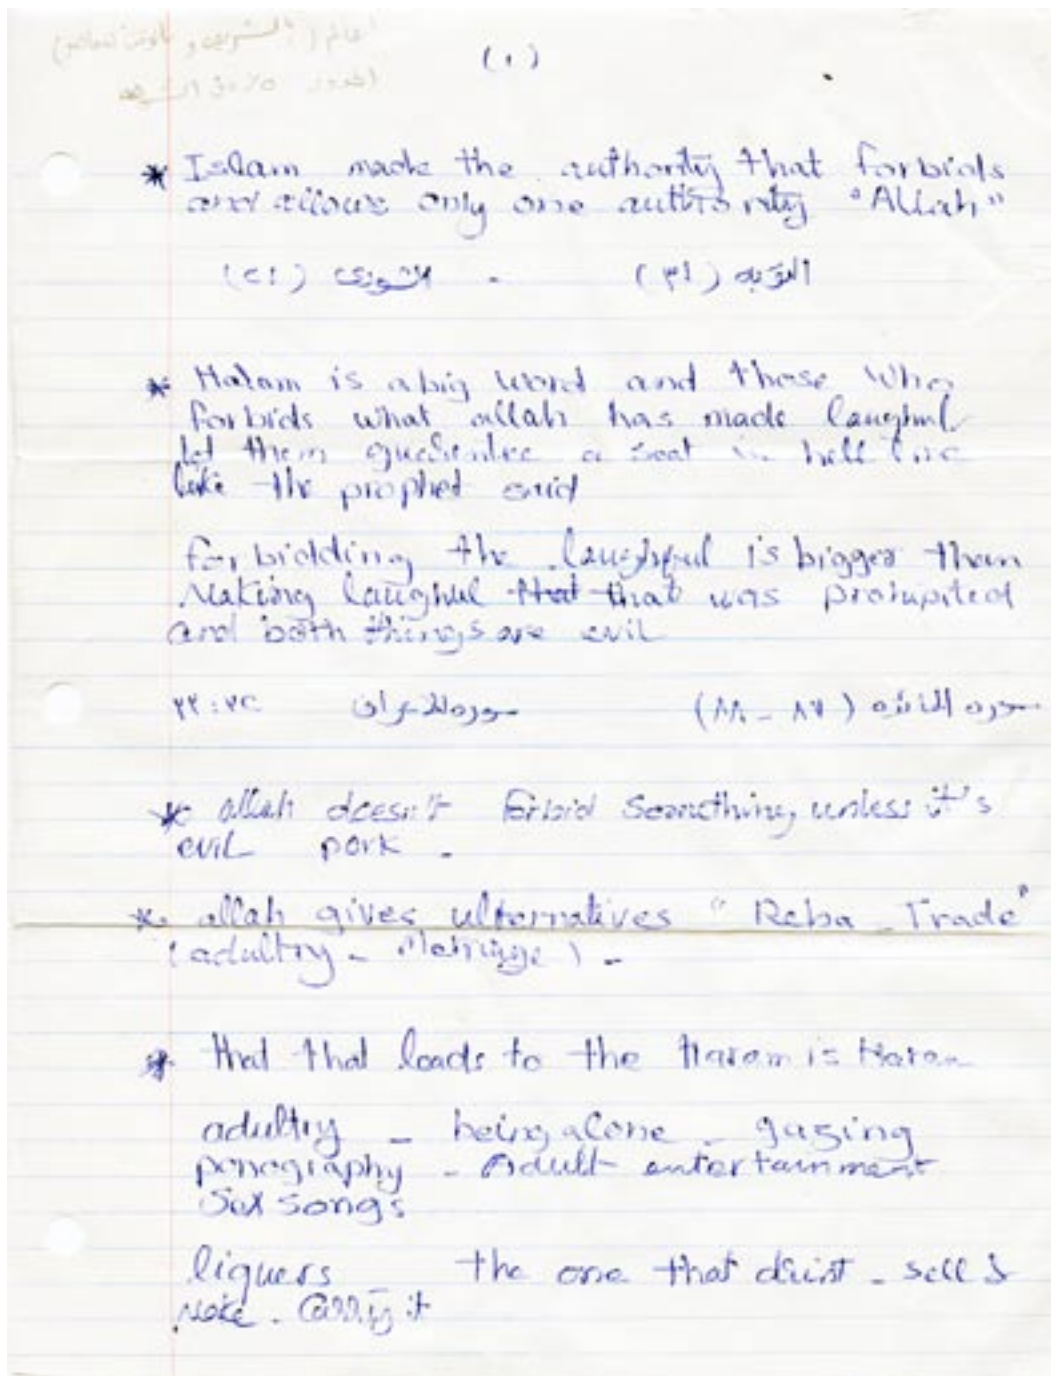 (١)
* Islam made the authority that forbids
and allows only one authority "Allah"
التوبه (٣١) - الشورى (٢١)
* Haram is a big word and those who
forbids what allah has made laughul
let them a seat in hell fire
like the prophet said
forbidding the laughful is bigger then
Making laughul that that was prohupited
and both things are evil
سوره المائده (٨٧ - ٨٨) سوره الاعراف ٣٢:٣٣
* allah doesn't forbid something unless it's
evil pork -
* allah gives ulternatives "Reba - Trade"
(adultry - Marriage) -
* that that leads to the Haram is Haram
adultry - being alone - gazing
ponography - Adult entertainment
Sex songs
liquers - the one that drint - sell &
Make - Carry it